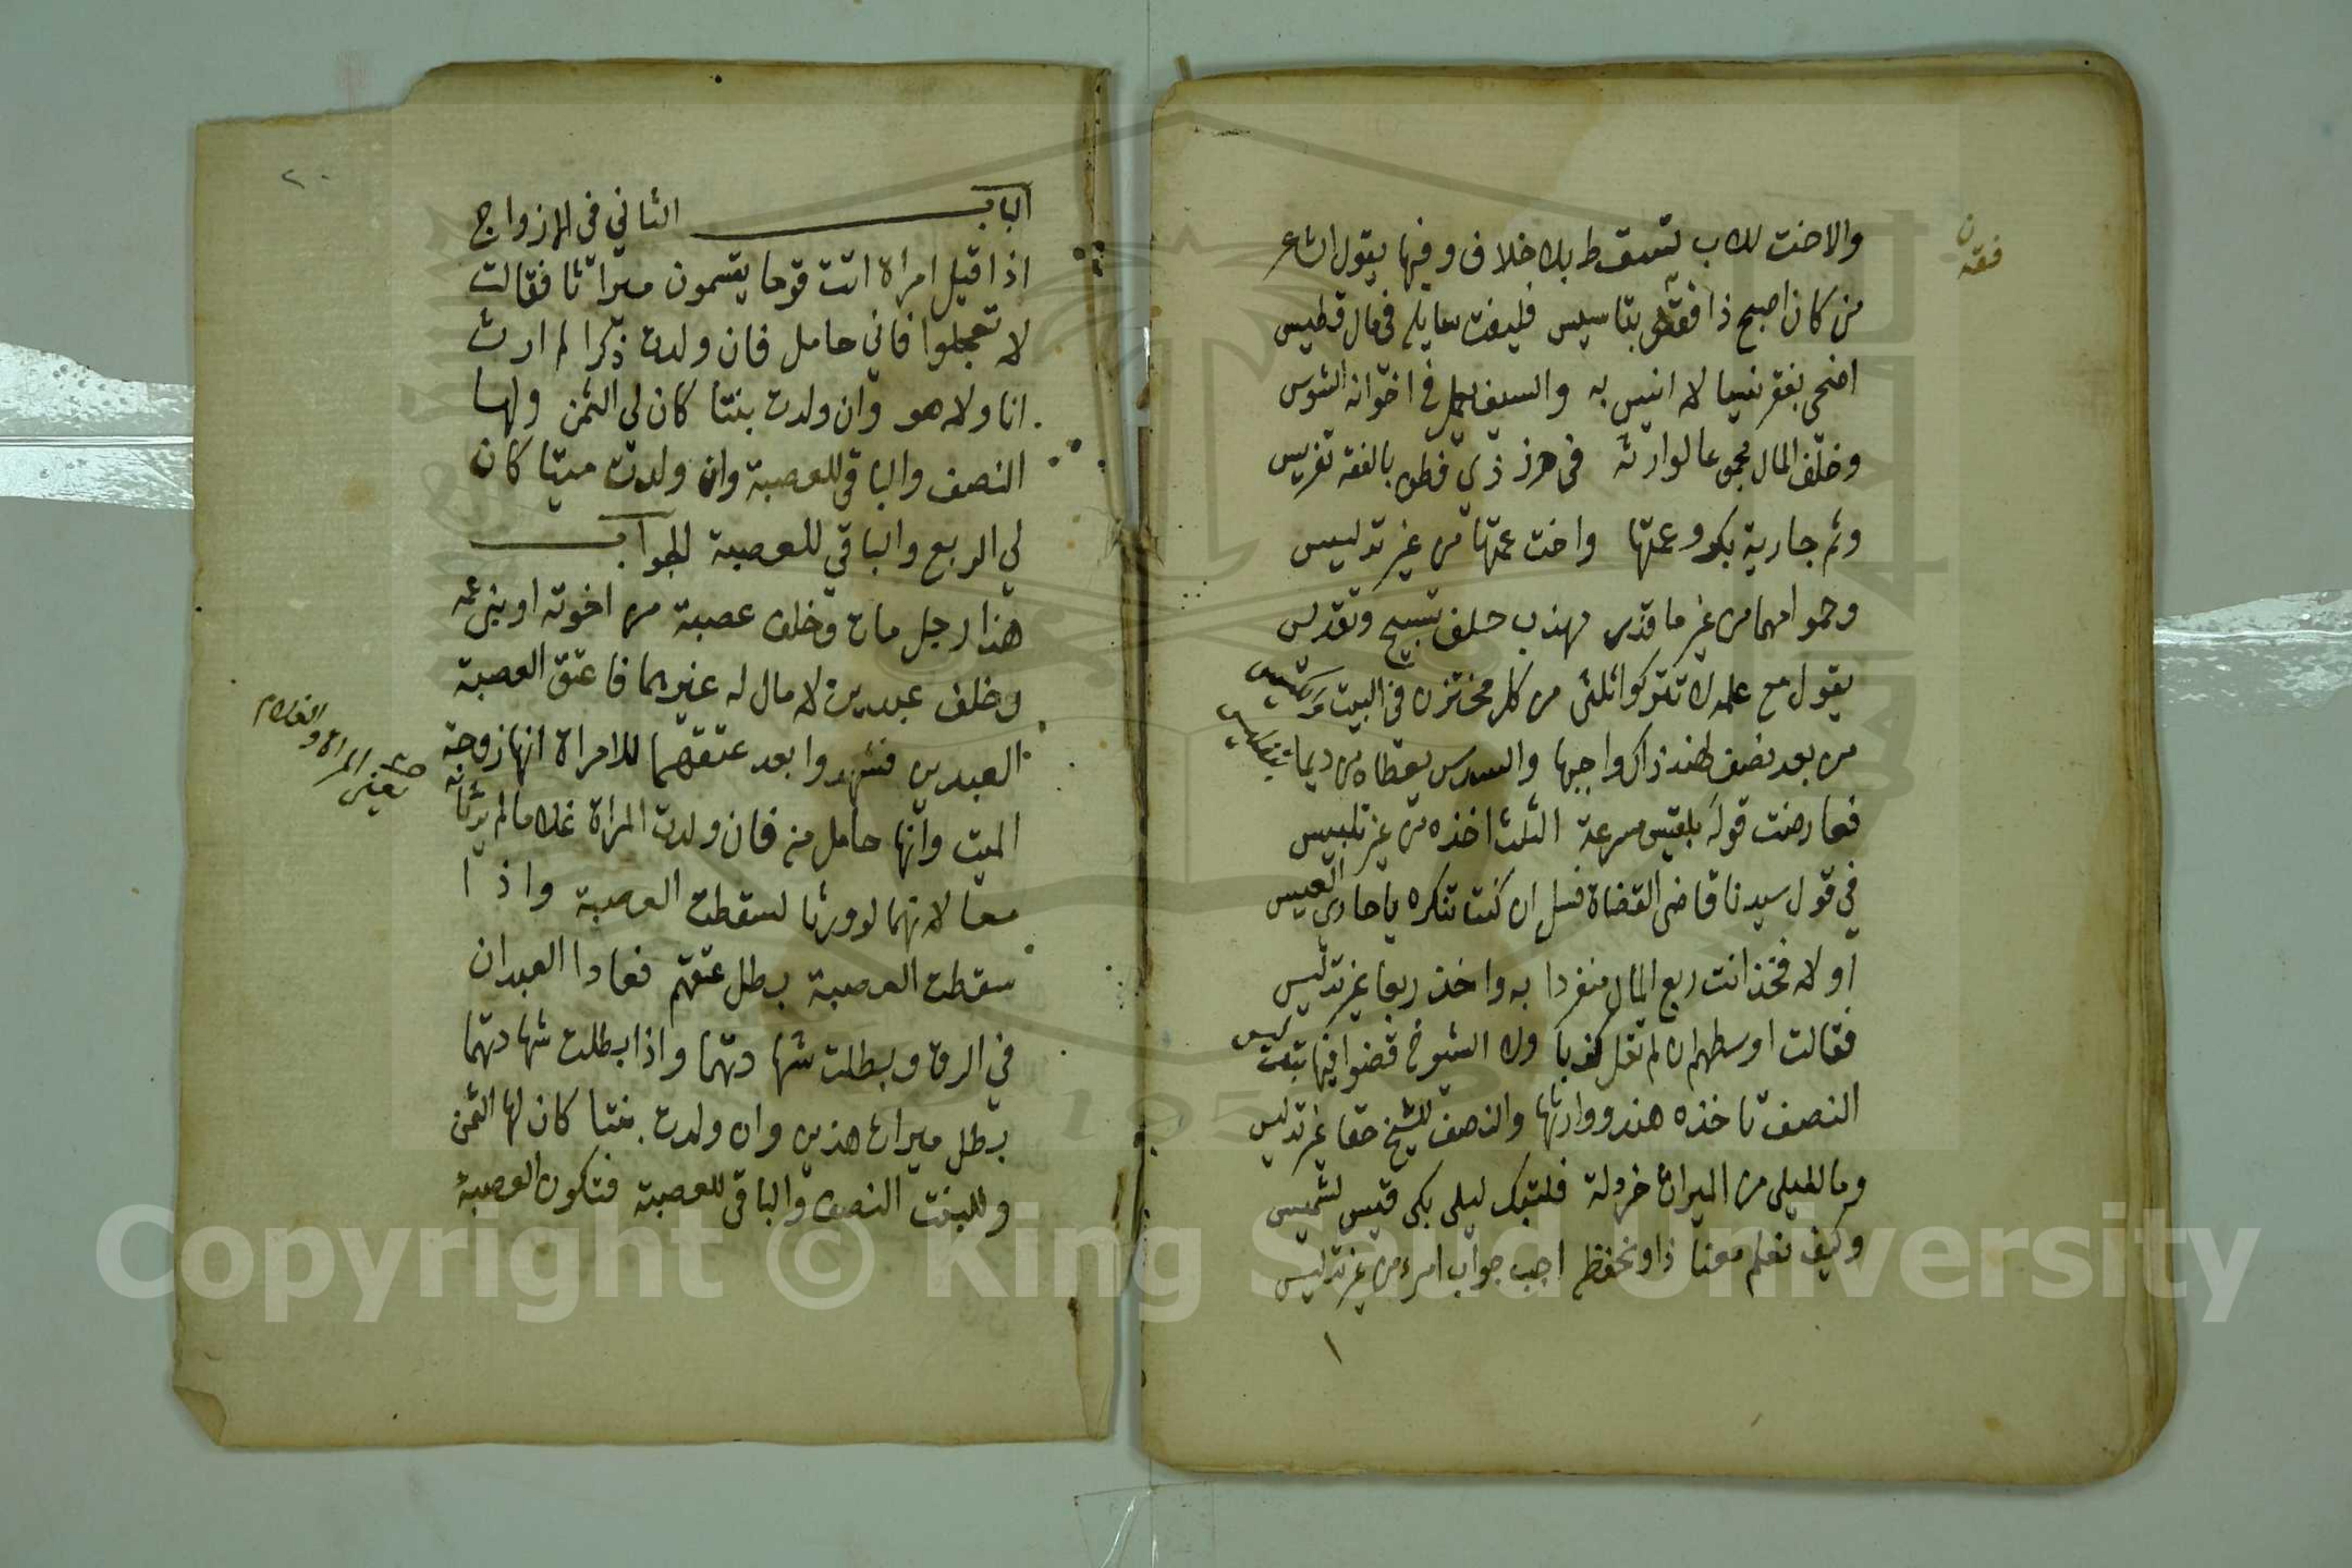 والاخت للاب تسقط بلا خلاف وفيها يقول الشاعر
من كان اصبح ذا فقه بتاسيس فليفت سايله في مال قطيس
اضحى بفقر نيسا لا انيس به والسيف في اخوانه الشوس
وخلف المال مجموعا لوارثه في حرز ذي فطن بالفقه تفريس
وثم جارية بكر وعمتها واخت عمتها من غير تدليس
وحموا امهما من غير ما قذر مهذب حلف تسبيح وتقديس
يقول مع علمه ان تتركوا ثلثى من كل مختزن في البيت
من بعد نصف لهند ذاك واجبها والسدس يعطاه من ديما
فعارضت قوله بلقيس مسرعة الثلث اخذه من غير تلبيس
في قول سيدنا قاضى القضاة فسل ان كنت تنكره يا حادي العيس
او لا فخذ انت ربع المال منفردا به واخذ ربعا غير تدليس
فقالت اوسطهم ان لم تقل كذبا ان الشيوخ قضوا فيها بتعت ليس
النصف تاخذه هند ووارثها والنصف للشيخ حقا غير تدليس
وما لليلى من الميراث خردلة فلتبك ليلى بكى قيس لشميس
وكيف نعلم معنا ذا ونحفظه اجب جواب امرء من غير تدليس
١
فقه
ن
٢٠
الباب الثاني في الازواج
اذا قيل امراة اتت قوما يقسمون ميراثا فقالت
لا تعجلوا فاني حامل فان ولدت ذكرا لم ارث
انا ولا هو وان ولدت بنتا كان لي الثمن ولها
النصف والباقي للعصبة وان ولدت ميتا كان
لي الربع والباقي للعصبة الجواب
هذا رجل مات وخلف عصبة من اخوته او بني عمه
وخلف عبدين لا مال له غيرهما فاعتق العصبة
العبدين فشهدوا بعد عتقهما للامراة انها زوجة
الميت وانها حامل منه فان ولدت المراة غلاما لم يرثانه
معا لانهما لو ورثا لسقطت العصبة واذا
سقطت العصبة بطل عتقهم فعادا العبدان
في الرق وبطلت شهادتهما واذا بطلت شهادتهما
بطل ميراث هذين وان ولدت بنتا كان لها الثمن
وللبنت النصف والباقي للعصبة فتكون العصبة
يعني المراة والغلام
Copyright © King Saud University